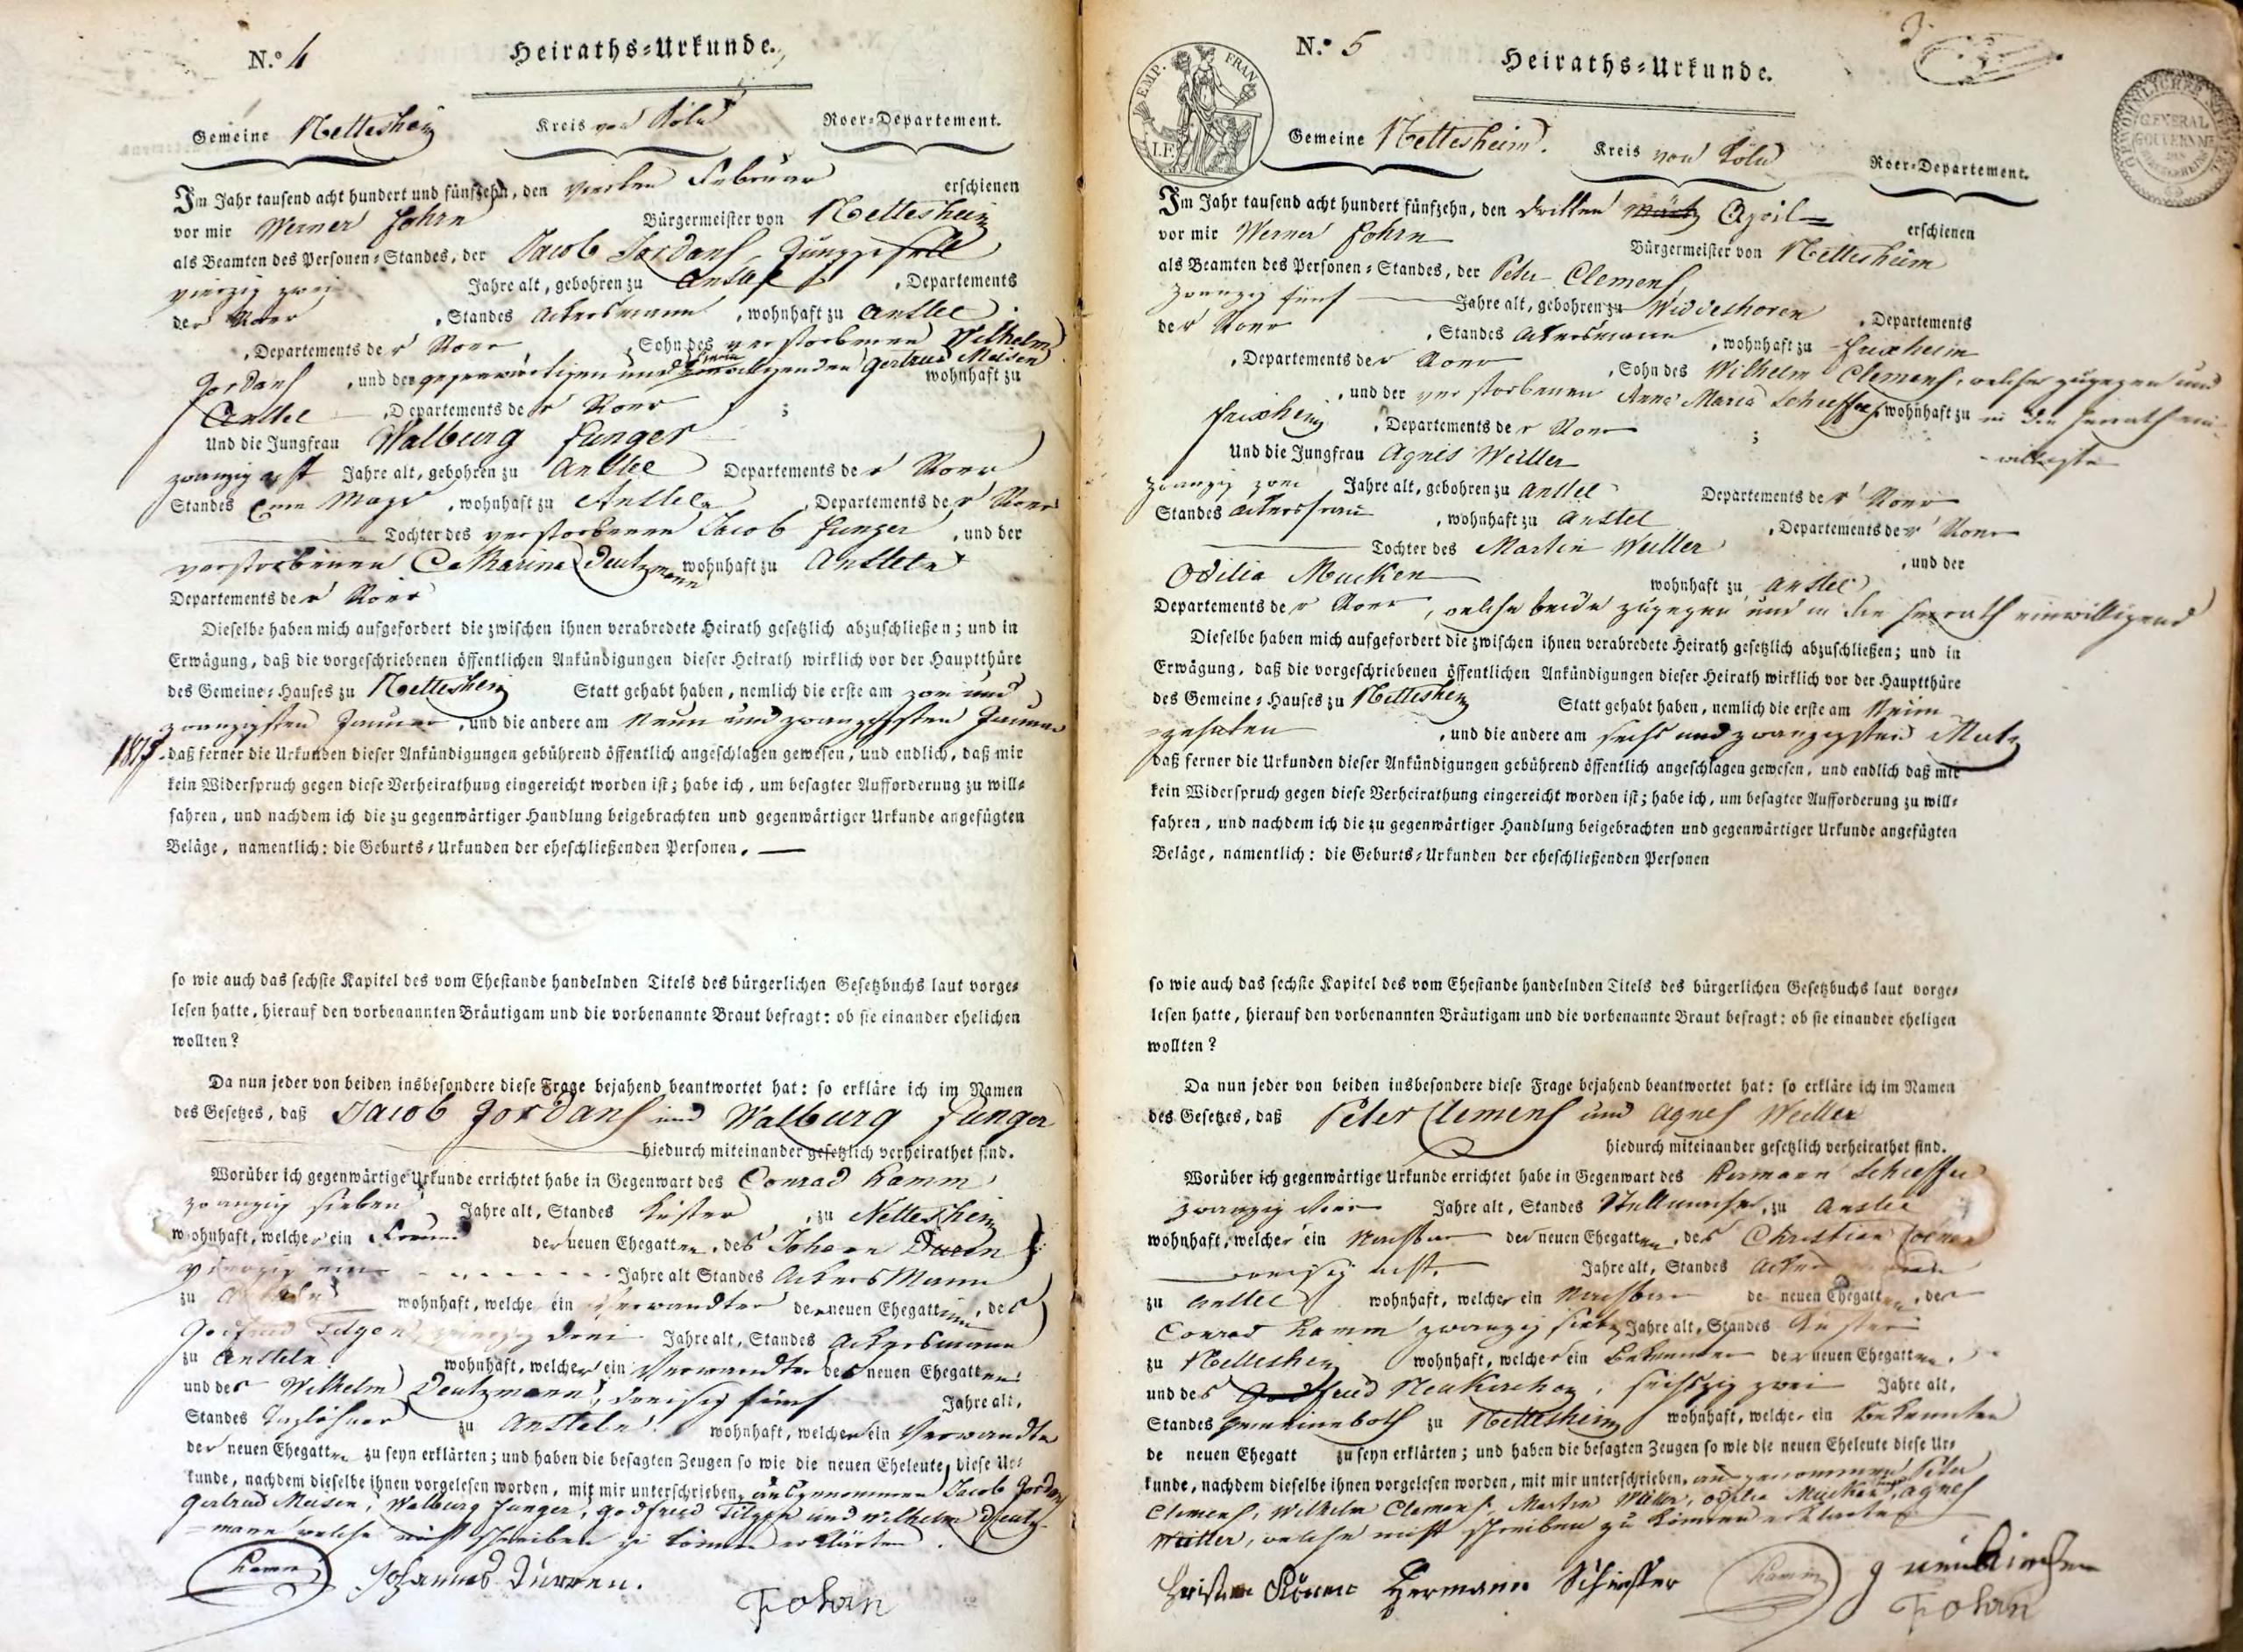 N.º 4
Heiraths-Urkunde.
Gemeine Nettesheim Kreis von Köln Roer-Departement.
Im Jahr tausend acht hundert und fünfzehn, den vierten Februar erschienen
vor mir Werner Fohrn Bürgermeister von Nettesheim
als Beamten des Personen-Standes, der Jacob Jordans, Junggesell
vierzig zwei Jahre alt, gebohren zu Anstel, Departements
der Roer, Standes Ackersmann, wohnhaft zu Anstel
, Departements der Roer, Sohn des verstorbenen Wilhelm
Jordans, und der gegenwärtigen und einwilligenden Gertrud Meisen wohnhaft zu
Anstel, Departements der Roer;
Und die Jungfrau Walburg Junger
zwanzig acht Jahre alt, gebohren zu Anstel Departements der Roer
Standes eine Magd, wohnhaft zu Anstel, Departements der Roer
Tochter des verstorbenen Jacob Junger, und der
verstorbenen Catharina Deutzmann wohnhaft zu Anstel
Departements der Roer
Dieselbe haben mich aufgefordert die zwischen ihnen verabredete Heirath gesetzlich abzuschließen; und in
Erwägung, daß die vorgeschriebenen öffentlichen Ankündigungen dieser Heirath wirklich vor der Hauptthüre
des Gemeine-Hauses zu Nettesheim Statt gehabt haben, nemlich die erste am zwei und
zwanzigsten Januar, und die andere am neun und zwanzigsten Januar
1815. daß ferner die Urkunden dieser Ankündigungen gebührend öffentlich angeschlagen gewesen, und endlich, daß mir
kein Widerspruch gegen diese Verheirathung eingereicht worden ist; habe ich, um besagter Aufforderung zu will-
fahren, und nachdem ich die zu gegenwärtiger Handlung beigebrachten und gegenwärtiger Urkunde angefügten
Beläge, namentlich: die Geburts-Urkunden der eheschließenden Personen.
so wie auch das sechste Kapitel des vom Ehestande handelnden Titels des bürgerlichen Gesetzbuchs laut vorge-
lesen hatte, hierauf den vorbenannten Bräutigam und die vorbenannte Braut befragt: ob sie einander ehelichen
wollten?
Da nun jeder von beiden insbesondere diese Frage bejahend beantwortet hat: so erkläre ich im Namen
des Gesetzes, daß Jacob Jordans und Walburg Junger
hiedurch miteinander gesetzlich verheirathet sind.
Worüber ich gegenwärtige Urkunde errichtet habe in Gegenwart des Conrad Kamm
zwanzig sieben Jahre alt, Standes Küster, zu Nettesheim
wohnhaft, welcher ein Freund der neuen Ehegatten, des Johann Düren
vierzig ein Jahre alt Standes Ackersmann
zu wohnhaft, welche ein Verwandter der neuen Ehegattin, des
Godfried Tilgen, vierzig drei Jahre alt, Standes Ackersmann
zu Anstel wohnhaft, welcher ein Verwandter des neuen Ehegatten
und des Wilhelm Deutzmann, dreisig fünf Jahre alt,
Standes Taglöhner zu Anstel wohnhaft, welcher ein Verwandte
der neuen Ehegatten zu seyn erklärten; und haben die besagten Zeugen so wie die neuen Eheleute diese Ur-
kunde, nachdem dieselbe ihnen vorgelesen worden, mit mir unterschrieben, ausgenommen Jacob Jordans
Gertrud Meisen, Walburg Junger, Godfried Tilgen und Wilhelm Deutz-
mann welche nicht schreiben zu können erklärten.
Kamm Johannes Düren.
Fohrn
N.º 5
Heiraths-Urkunde.
EMP. FRAN.
GENERAL
GOUVERNEM
Gemeine Nettesheim. Kreis von Köln Roer-Departement.
Im Jahr tausend acht hundert fünfzehn, den dritten März April erschienen
vor mir Werner Fohrn Bürgermeister von Nettesheim
als Beamten des Personen-Standes, der Peter Clemens
zwanzig fünf Jahre alt, gebohren zu Widdeshoven, Departements
der Roer, Standes Ackersmann, wohnhaft zu Frixheim
, Departements der Roer, Sohn des Wilhelm Clemens, welcher zugegen und
, und der verstorbenen Anna Maria Schieffer, wohnhaft zu in die Heirath ein-
Frixheim, Departements der Roer; willigte
Und die Jungfrau Agnes Weitler
zwanzig zwei Jahre alt, gebohren zu Anstel Departements der Roer
Standes Ackersfrau, wohnhaft zu Anstel, Departements der Roer
Tochter des Martin Weitler, und der
Odilia Mucken wohnhaft zu Anstel
Departements der Roer, welche beide zugegen und in die Heirath einwilligend
Dieselbe haben mich aufgefordert die zwischen ihnen verabredete Heirath gesetzlich abzuschließen; und in
Erwägung, daß die vorgeschriebenen öffentlichen Ankündigungen dieser Heirath wirklich vor der Hauptthüre
des Gemeine-Hauses zu Nettesheim Statt gehabt haben, nemlich die erste am Neun
zehnten, und die andere am sechs und zwanzigsten März
daß ferner die Urkunden dieser Ankündigungen gebührend öffentlich angeschlagen gewesen, und endlich daß mir
kein Widerspruch gegen diese Verheirathung eingereicht worden ist; habe ich, um besagter Aufforderung zu will-
fahren, und nachdem ich die zu gegenwärtiger Handlung beigebrachten und gegenwärtiger Urkunde angefügten
Beläge, namentlich: die Geburts-Urkunden der eheschließenden Personen
so wie auch das sechste Kapitel des vom Ehestande handelnden Titels des bürgerlichen Gesetzbuchs laut vorge-
lesen hatte, hierauf den vorbenannten Bräutigam und die vorbenannte Braut befragt: ob sie einander eheligen
wollten?
Da nun jeder von beiden insbesondere diese Frage bejahend beantwortet hat: so erkläre ich im Namen
des Gesetzes, daß Peter Clemens und Agnes Weitler
hiedurch miteinander gesetzlich verheirathet sind.
Worüber ich gegenwärtige Urkunde errichtet habe in Gegenwart des Hermann Schieffer
zwanzig Jahre alt, Standes Stellmacher, zu Anstel
wohnhaft, welcher ein Nachbar der neuen Ehegatten, des Christian
dreisig acht Jahre alt, Standes
zu Anstel wohnhaft, welcher ein Nachbar de neuen Ehegatten, des
Conrad Kamm zwanzig sieben Jahre alt, Standes Küster
zu Nettesheim wohnhaft, welcher ein Bekannter der neuen Ehegatten,
und des Godfried Neukirchen, sechszig zwei Jahre alt,
Standes Gemeinebott zu Nettesheim wohnhaft, welcher ein Bekannter
de neuen Ehegatt zu seyn erklärten; und haben die besagten Zeugen so wie die neuen Eheleute diese Ur-
kunde, nachdem dieselbe ihnen vorgelesen worden, mit mir unterschrieben, ausgenommen Peter
Clemens, Wilhelm Clemens, Martin Weitler, Odilia Mucken, Agnes
Weitler, welche nicht schreiben zu können erklärten
Hermann Schieffer Kamm
Fohrn